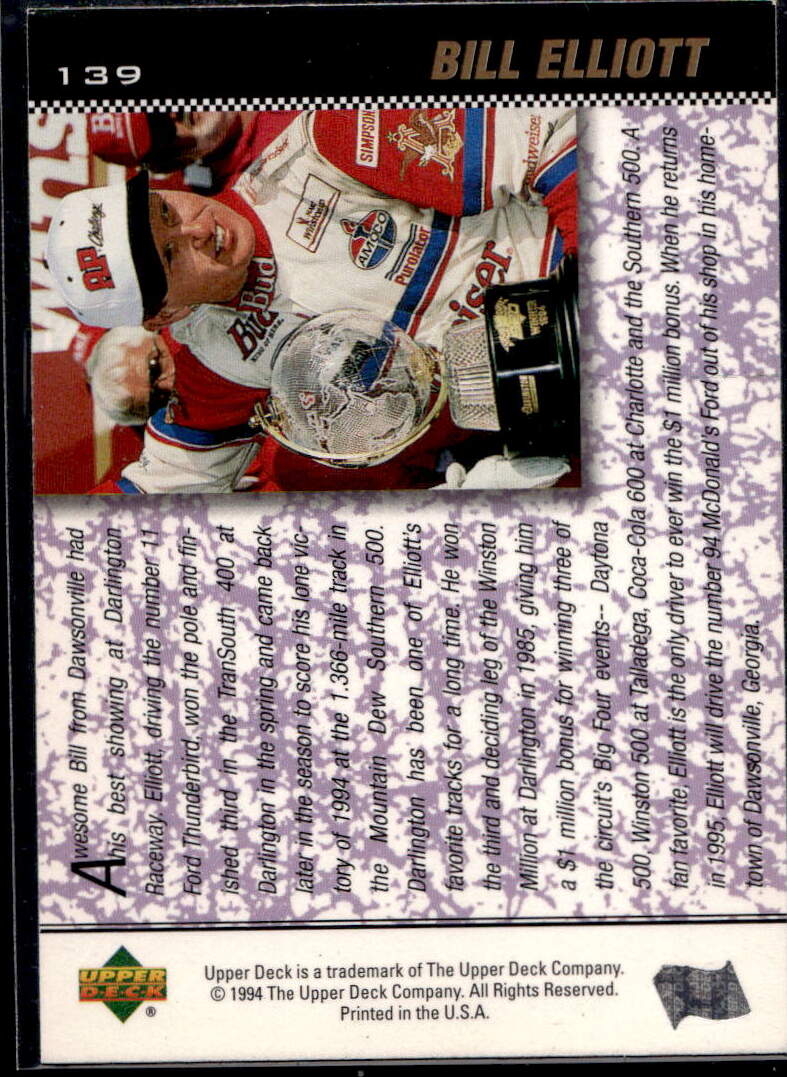 139
BILL ELLIOTT
SIMPSON
Budweiser
True Winstomp
AMOCO
Purolator
RP Challenge
Bud
KING OF BEERS
iser
Awesome Bill from Dawsonville had
his best showing at Darlington
Raceway. Elliott, driving the number 11
Ford Thunderbird, won the pole and fin-
ished third in the TranSouth 400 at
Darlington in the spring and came back
later in the season to score his lone vic-
tory of 1994 at the 1.366-mile track in
the Mountain Dew Southern 500.
Darlington has been one of Elliott's
favorite tracks for a long time. He won
the third and deciding leg of the Winston
Million at Darlington in 1985, giving him
a $1 million bonus for winning three of
the circuit's Big Four events-- Daytona
500, Winston 500 at Talladega, Coca-Cola 600 at Charlotte and the Southern 500. A
fan favorite, Elliott is the only driver to ever win the $1 million bonus. When he returns
in 1995, Elliott will drive the number 94 McDonald's Ford out of his shop in his home-
town of Dawsonville, Georgia.
UPPER
D·E·C·K
®
Upper Deck is a trademark of The Upper Deck Company.
© 1994 The Upper Deck Company. All Rights Reserved.
Printed in the U.S.A.